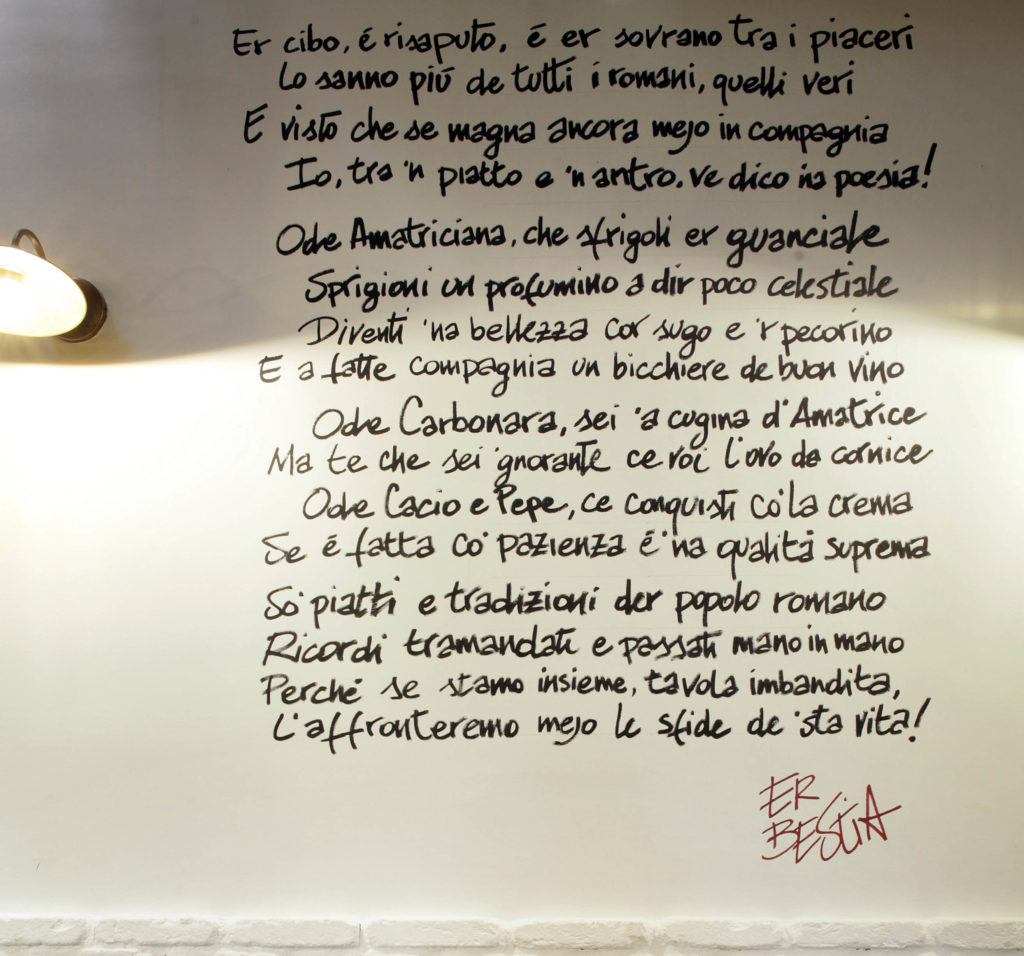 Er cibo, é risaputo, é er sovrano tra i piaceri
Lo sanno piú de tutti i romani, quelli veri
E visto che se magna ancora mejo in compagnia
Io, tra 'n piatto e 'n antro, ve dico 'na poesia!
Oche Amatriciana, che sfrigoli er guanciale
Sprigioni un profumino a dir poco celestiale
Diventi 'na bellezza cor sugo e 'r pecorino
E a fatte compagnia un bicchiere de buon vino
Oche Carbonara, sei 'a cugina d'Amatrice
Ma te che sei 'gnorante ce voi l'ovo da cornice
Oche Cacio e Pepe, ce conquisti co' la crema
Se é fatta co' pazienza é 'na qualitá suprema
So' piatti e tradizioni der popolo romano
Ricordi tramandati e passati mano in mano
Perché se stamo insieme, tavola imbandita,
L'affronteremo mejo le sfide de 'sta vita!
ER
BESTIA